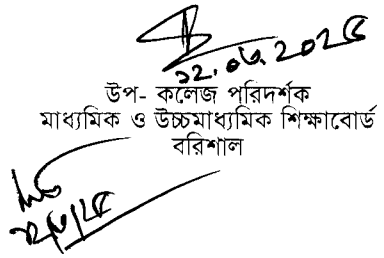 ১২.০৬.২০২৫
উপ- কলেজ পরিদর্শক
মাধ্যমিক ও উচ্চমাধ্যমিক শিক্ষাবোর্ড
বরিশাল